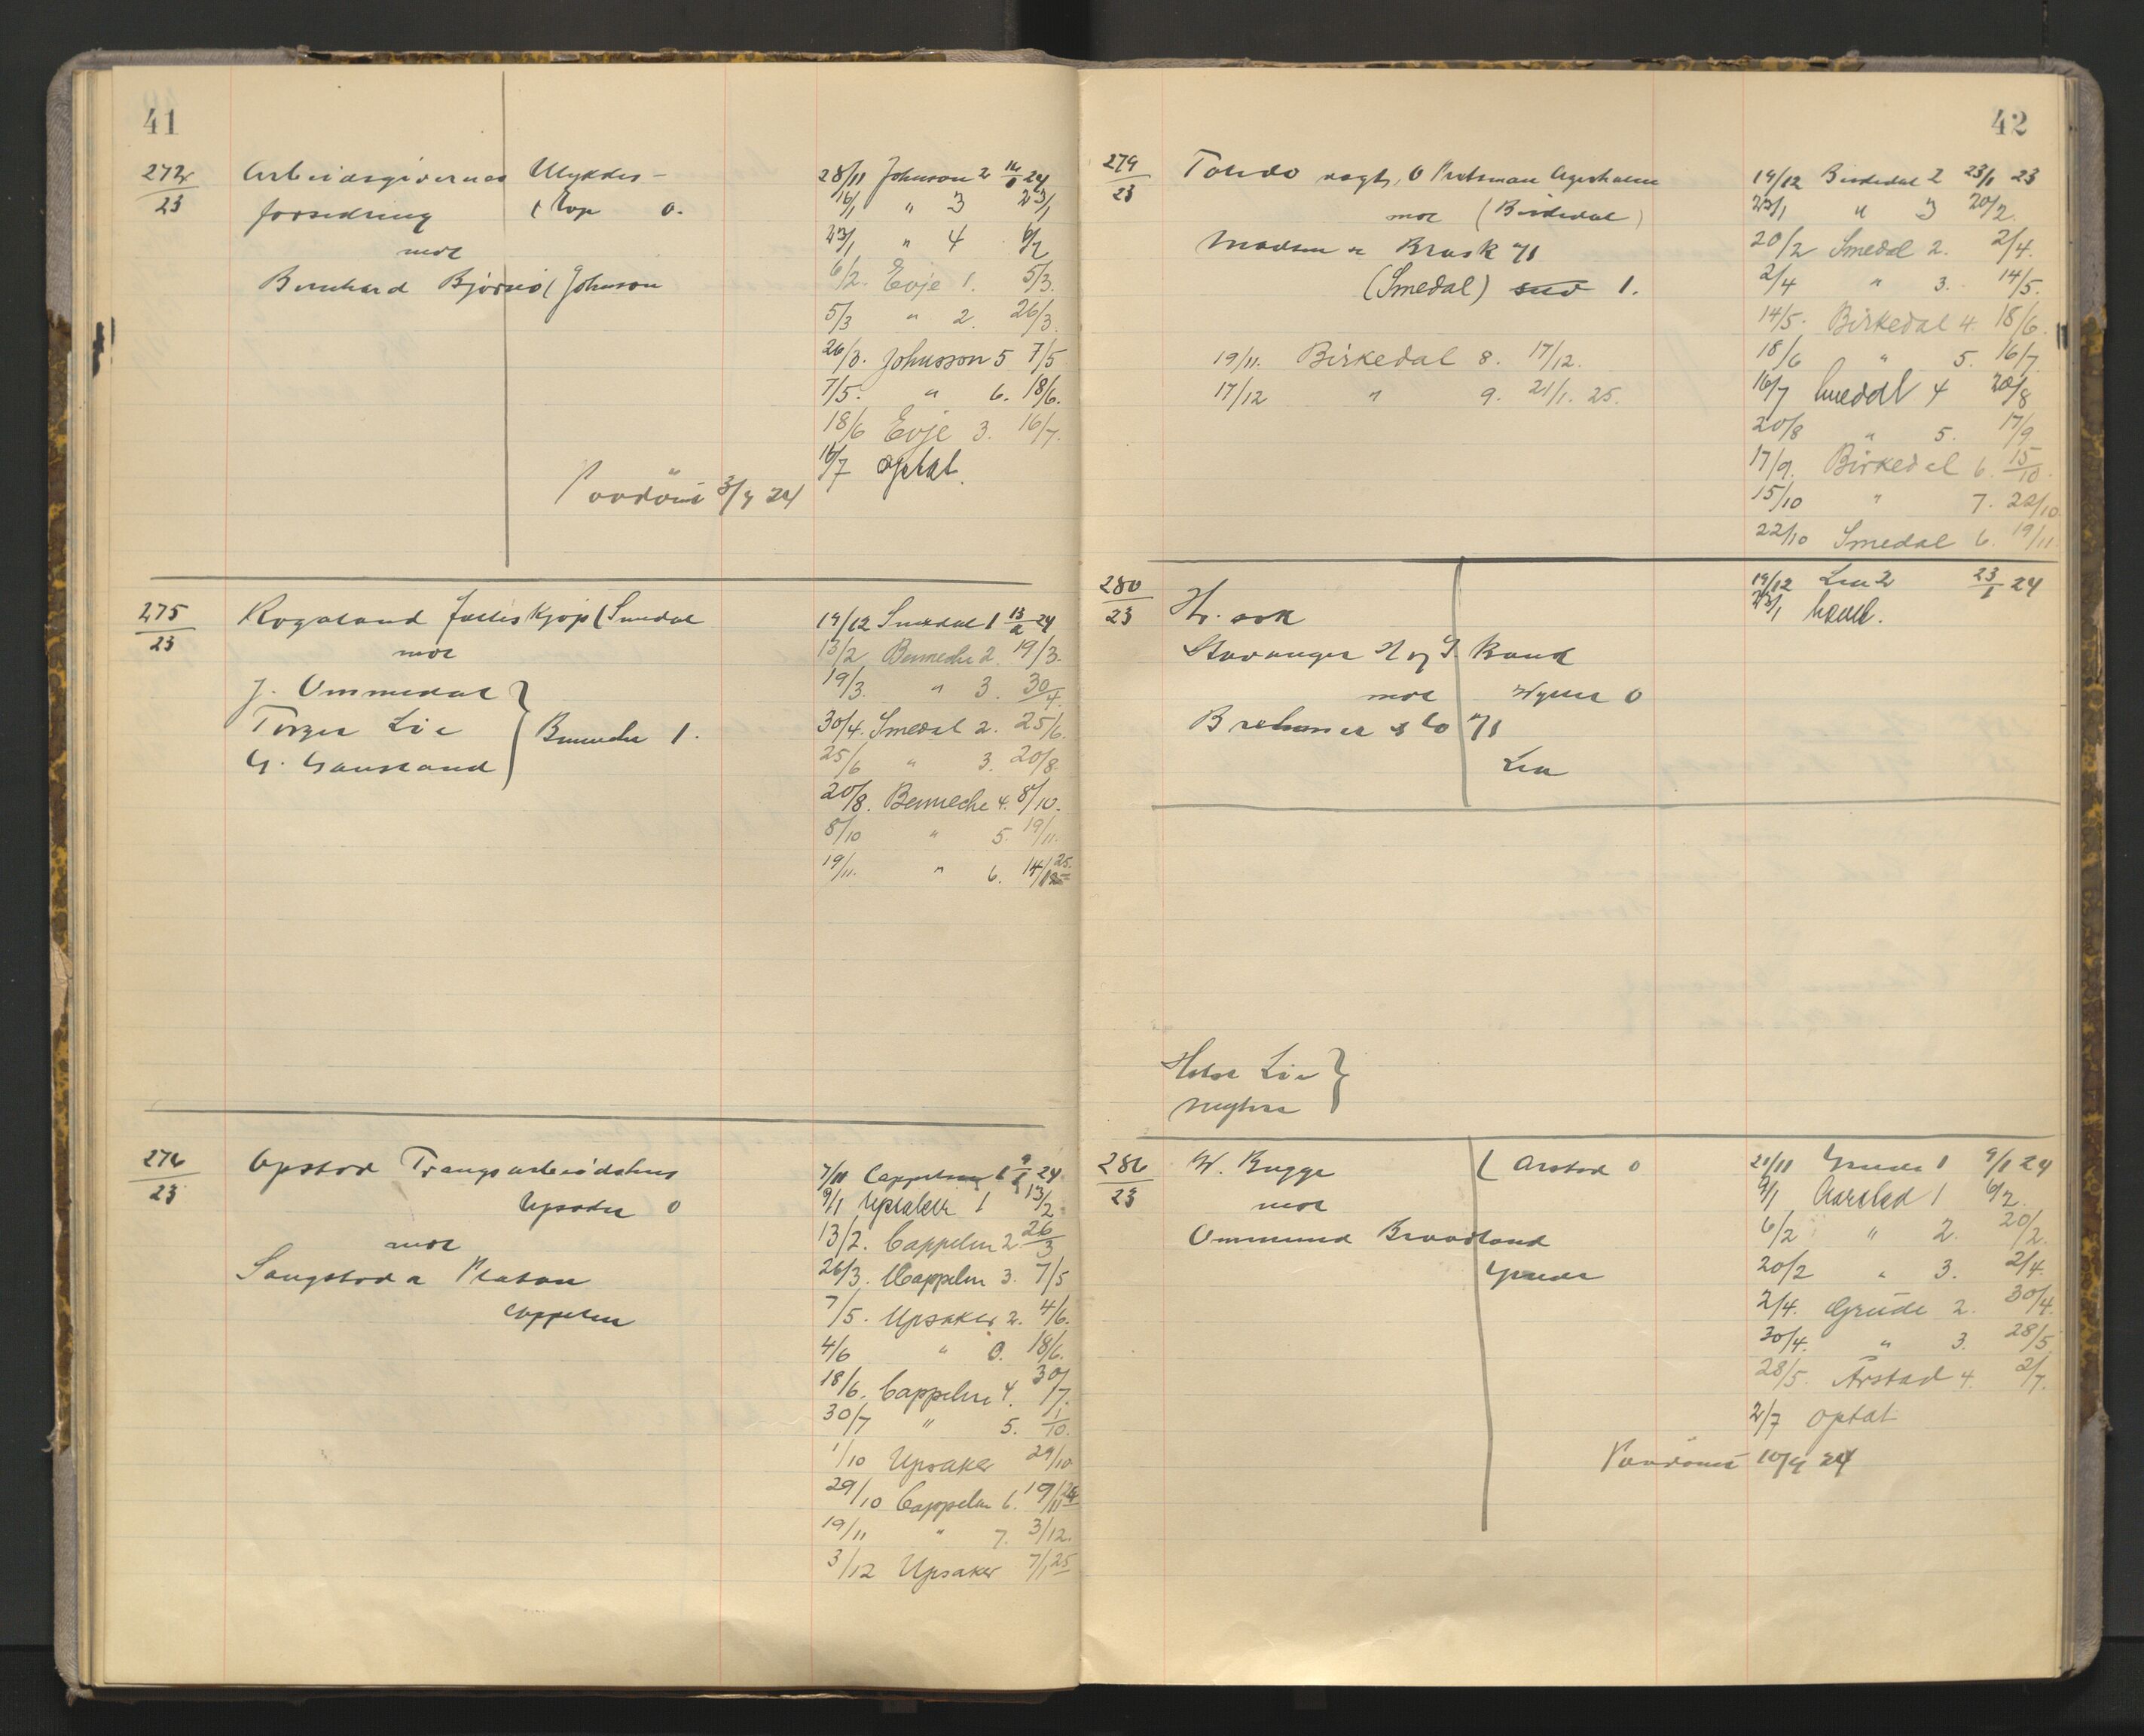 41
272
23
Arbeidsgivernes Ulykkes-
forsikring
0.
mot
Bernhard Johnson
28/11 Johnson 2 16/1 24
16/1 " 3 23/1
23/1 " 4 6/2
6/2. Evje 1. 5/3.
5/3 " 2. 26/3.
26/3. Johnsson 5 7/5
7/5. " 6. 18/6.
18/6 Evje 3. 16/7.
16/7 optat.
Paadömt 3/9 24
275
23
Rogaland Felleskjøp (Smedal
mot
J. Ommedal
Torger Lie
G. Gausland
Benneche 1.
19/12 Smedal 1 13/2 24
13/2 Benneche 2. 19/3.
19/3. " 3. 30/4.
30/4. Smedal 2. 25/6.
25/6 " 3. 20/8.
20/8. Benneche 4. 8/10.
8/10 " 5. 19/11.
19/11. " 6. 14/1 25.
276
23
Opstad Tvangsarbeidshus
Upsaker 0
mot
Cappelen
7/11 Cappelen 1 9/1 24
9/1 Upsaker 1 13/2
13/2. Cappelen 2 26/3
26/3. Cappelen 3. 7/5
7/5. Upsaker 2. 4/6.
4/6 " 3. 18/6.
18/6. Cappelen 4. 30/7.
30/7 " 5. 1/10.
1/10 Upsaker 29/10
29/10 Cappelen 6. 19/11 24
19/11 " 7. 3/12.
3/12 Upsaker 7/1 25
42
279
23
Toledo
mot (Birkedal)
Madsen & Brask A/S
(Smedal) 1.
19/11. Birkedal 8. 17/12.
17/12 " 9. 21/1. 25.
19/12 Birkedal 2 23/1 23
23/1 " 3 20/2.
20/2 Smedal 2. 2/4.
2/4 " 3. 14/5.
14/5. Birkedal 4. 18/6.
18/6 " 5. 16/7.
16/7 Smedal 4 20/8
20/8 " 5. 17/9
17/9. Birkedal 6. 15/10.
15/10 " 7. 22/10.
22/10 Smedal 6. 19/11.
280
23
Stavanger H og I. Bank
mot
A/S
Lea
19/12 Lea 2 23/1 24
23/1 hævet.
Lie
286
23
W. Bugge (Arstad 0
mot
Ommund Braadland
Grude
21/11 Grude 1 9/1 24
9/1 Aarstad 1 6/2.
6/2 " 2. 20/2.
20/2 " 3. 2/4.
2/4. Grude 2. 30/4.
30/4. " 3. 28/5.
28/5. Årstad 4. 2/7.
2/7 optat
Paadömt 10/9 24